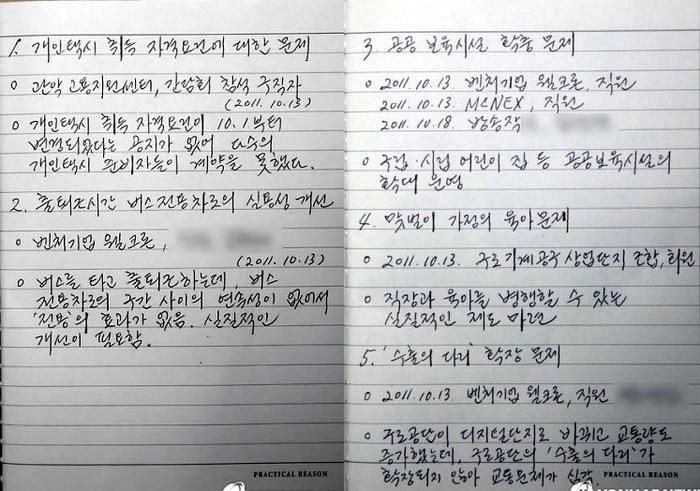 1. 개인택시 취득 자격요건에 대한 문제
o 관악 고용지원센터, 간담회 참석 구직자
(2011.10.13)
o 개인택시 취득 자격요건이 10.1부터
변경되었다는 공지가 없어 다수의
개인택시 준비자들이 계약을 못했다.
2. 출퇴근시간 버스전용차로의 실용성 개선
o 벤처기업 웰크론,
(2011.10.13)
o 버스를 타고 출퇴근하는데, 버스
전용차로의 구간 사이의 연속성이 없어서
'전용'의 효과가 없음. 실질적인
개선이 필요함.
PRACTICAL REASON
3. 공공 보육시설 확충 문제
o 2011.10.13. 벤처기업 웰크론, 직원
2011.10.13. MCNEX, 직원
2011.10.18. 방송작
o 국립·시립 어린이 집 등 공공보육시설의
확대 운영
4. 맞벌이 가정의 육아문제
o 2011.10.13. 구로기계공구상업단지 조합, 회원
o 직장과 육아를 병행할 수 있는
실질적인 제도 마련
5. '수출의 다리' 확장 문제
o 2011.10.13. 벤처기업 웰크론, 직원
o 구로공단이 디지털단지로 바뀌고 교통량도
증가했는데, 구로공단의 '수출의 다리'가
확장되지 않아 교통문제가 심각
PRACTICAL REASON